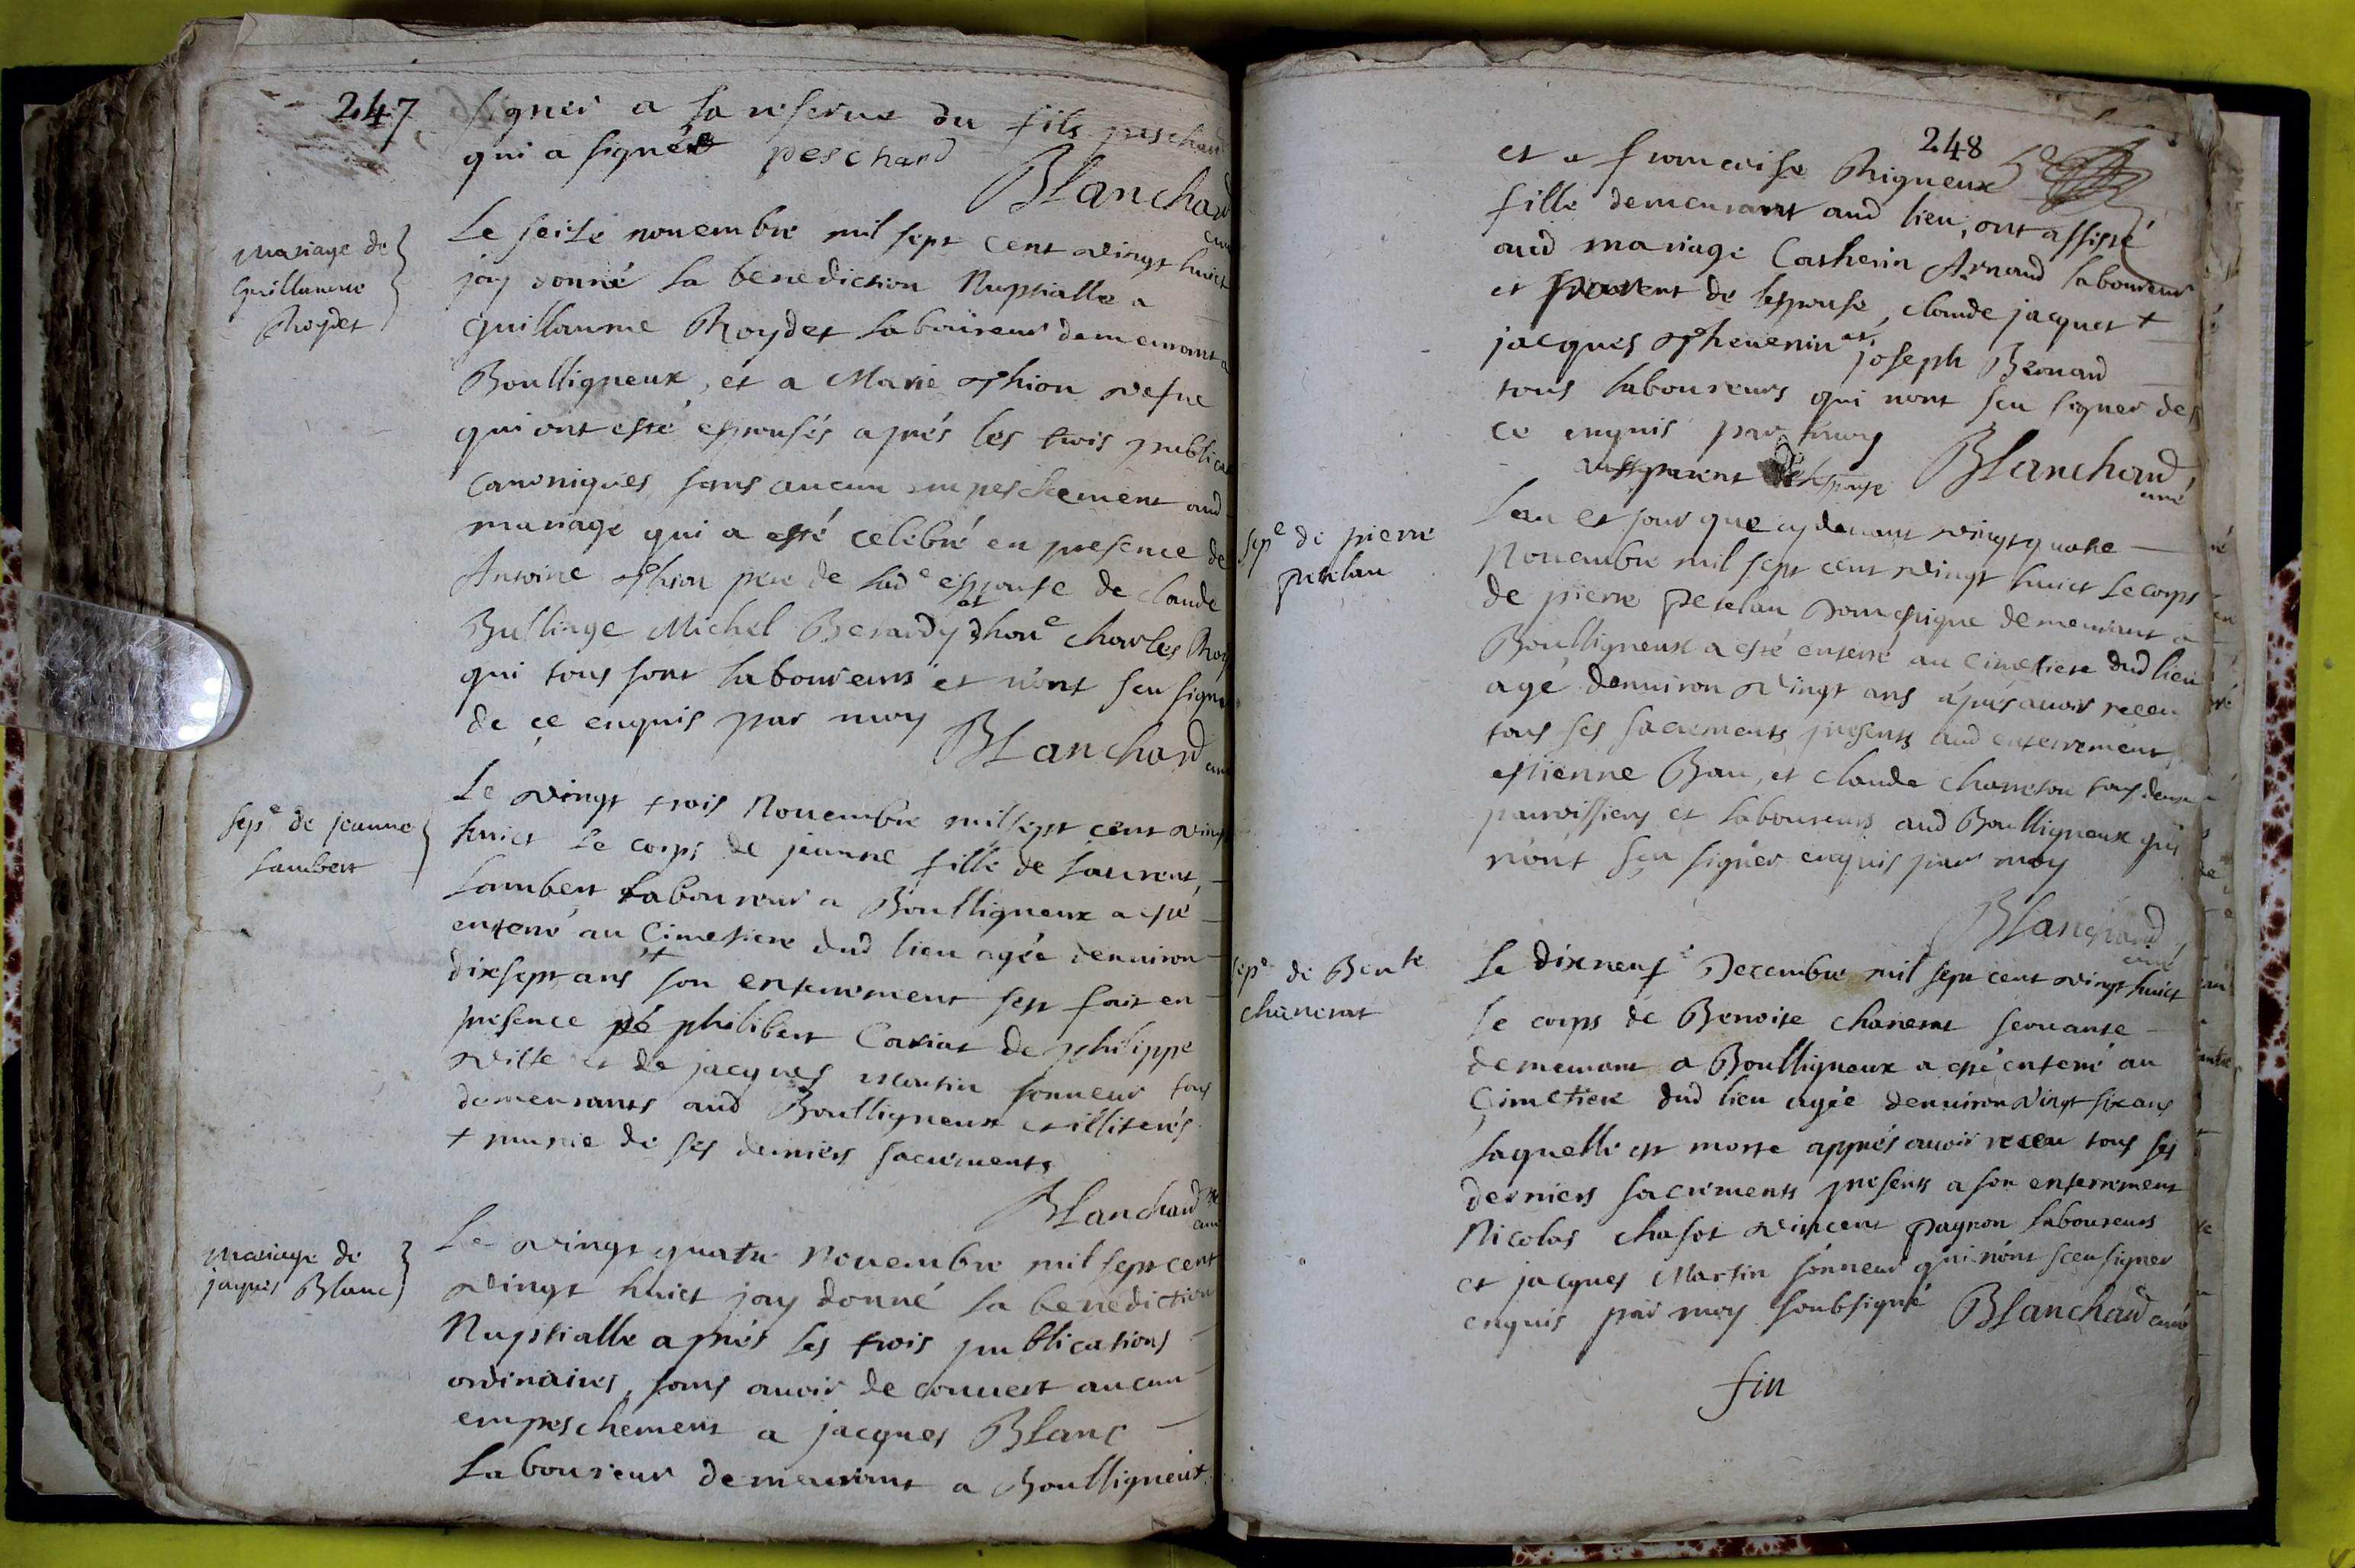 247
signer a la reserue du fils peschard
qui a signé peschard
Blanchard
curé
mariage de
Guillaume
Roydet
Le seize nouembre mil sept cent vingt huict
jay donné la benediction Nuptialle a
guillaume Roydet laboureur demeurant a
Boulligneux, et a Marie Thion vefue
qui ont esté espousés aprés les trois publica
canoniques sans aucun empeschement aud
mariage qui a esté celebré en presence de
Antoine Thion pere de lad^e espouse de claude
Bullinge Michel Berardy et hon^e charles Roy
qui tous sont laboureurs et n'ont sçu signer
de ce enquis par moy
Blanchard curé
sep^e de jeanne
Lambert
Le vingt trois Nouembre mil sept cent vingt
huict le corps de jeanne fille de Laurent
Lambert laboureur a Boulligneux a esté
enterré au Cimetiere dud lieu agée denuiron
dixsept ans + son enterrement sest fait en
presence de philibert Cariat de philippe
ville et de jacques Martin sonneur tous
demeurants aud Boulligneux et illiterés
+ munie de ses derniers sacrements
Blanchard
curé
mariage de
jaques Blanc
Le vingt quatre Nouembre mil sept cent
vingt huict jay donné la benediction
Nuptialle aprés les trois publications
ordinaires, sans auoir decouuert aucun
empeschement a jacques Blanc
Laboureur demeurant a Boulligneux
248
et a francoise Rigneux
fille demeurant aud lieu, ont assisté
aud mariage Catherin Arnaud laboureur
et parent de lespouse, claude jacquet +
jacques Theuenin et joseph Bernard
tous laboureurs qui nont sçu signer de
ce enquis par moy
aussy parent de lespouse
Blanchard
curé
sep^e de pierre
petelan
Lan et jour que cy deuant vingt quatre
Nouembre mil sept cent vingt huict le corps
de pierre petelan domestique demeurant a
Boulligneux a esté enterré au cimetiere dud lieu
agé denuiron vingt ans aprés auoir receu
tous ses sacrements presents aud enterrement
estienne Bau, et claude charreton tous deux
paroissiens et laboureurs aud Boulligneux qui
n'ont sçu signer enquis par moy
Blanchard
curé
sep^e de Ben^te
chanerat
Le dixneuf^e Decembre mil sept cent vingt huict
le corps de Benoite chanerat seruante
demeurant a Boulligneux a esté enterré au
Cimetiere dud lieu agée denuiron vingt six ans
laquelle est morte apprés auoir receu tous ses
derniers sacrements presents a son enterrement
Nicolas chasot vincent payron laboureurs
et jacques Martin sonneur qui n'ont sceu signer
enquis par moy soubsigné Blanchard curé
fin